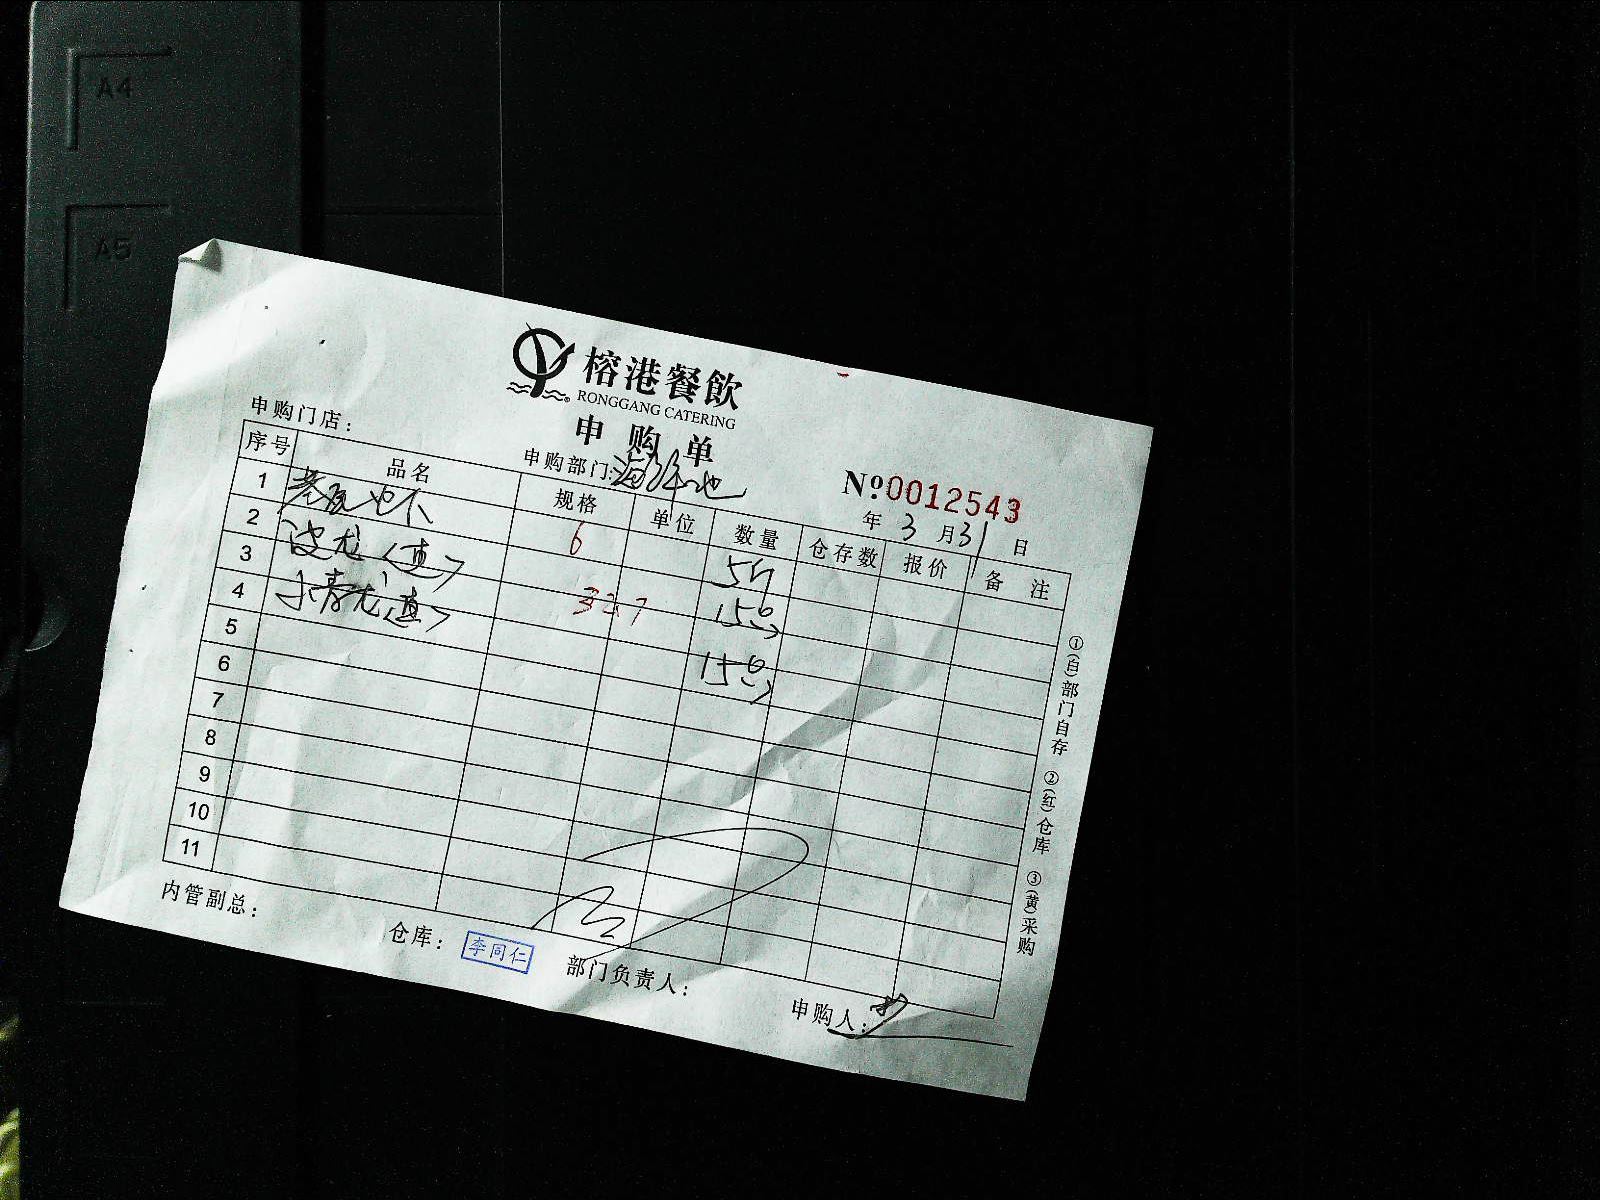 A4
A5
榕港餐飲
RONGGANG CATERING
申购单
申购门店：
申购部门：海鲜池
№0012543
年 3 月 31 日
序号 品名 规格 单位 数量 仓存数 报价 备注
1 基围 6 5斤
2 波龙（直） 15只
3 小青龙（直） 15只
4
5
6
7
8
9
10
11
①(白)部门自存 ②(红)仓库 ③(黄)采购
内管副总：
仓库：李同仁
部门负责人：
申购人：